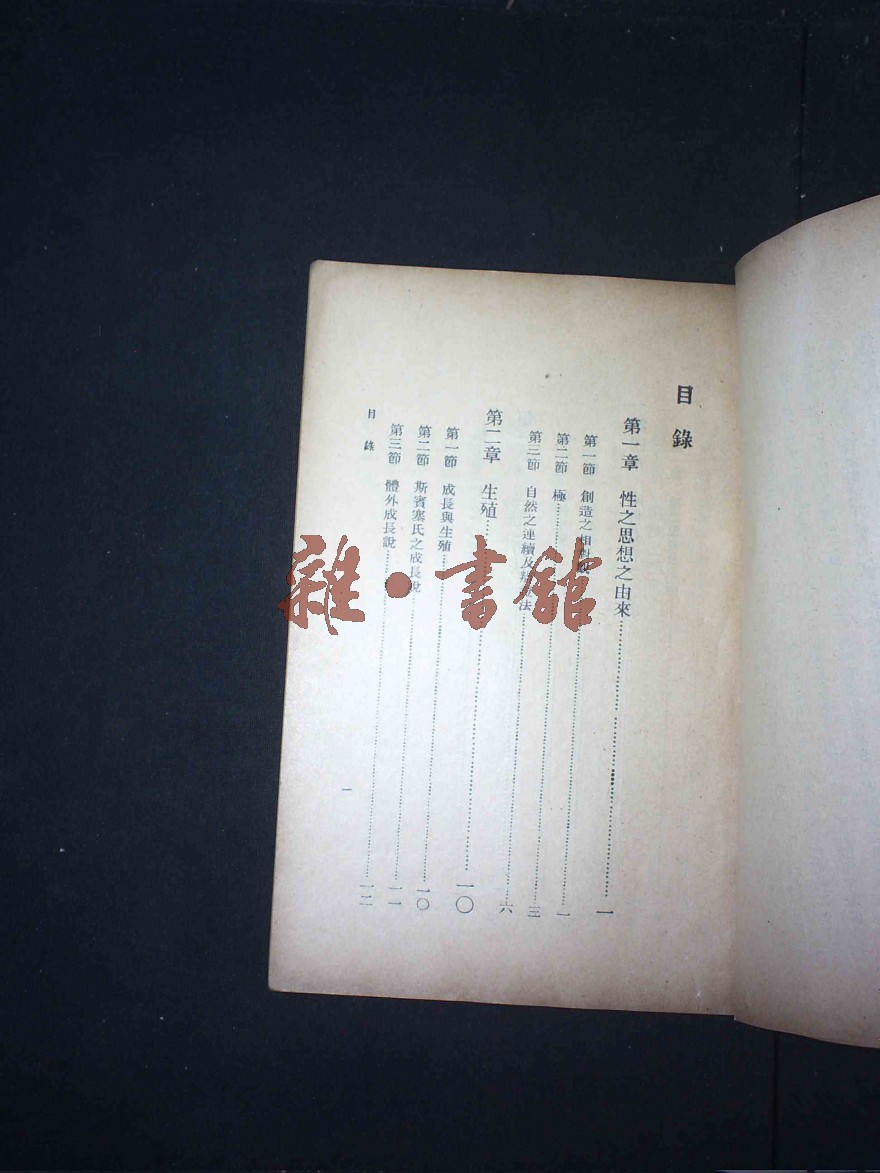 目錄
第一章 性之思想之由來……一
第一節 創造之相對……一
第二節 極……三
第三節 自然之連續及 法……六
第二章 生殖……一〇
第一節 成長與生殖……一〇
第二節 斯賓塞氏之成長說……一一
第三節 體外成長說……一二
目錄
一
雜·書館